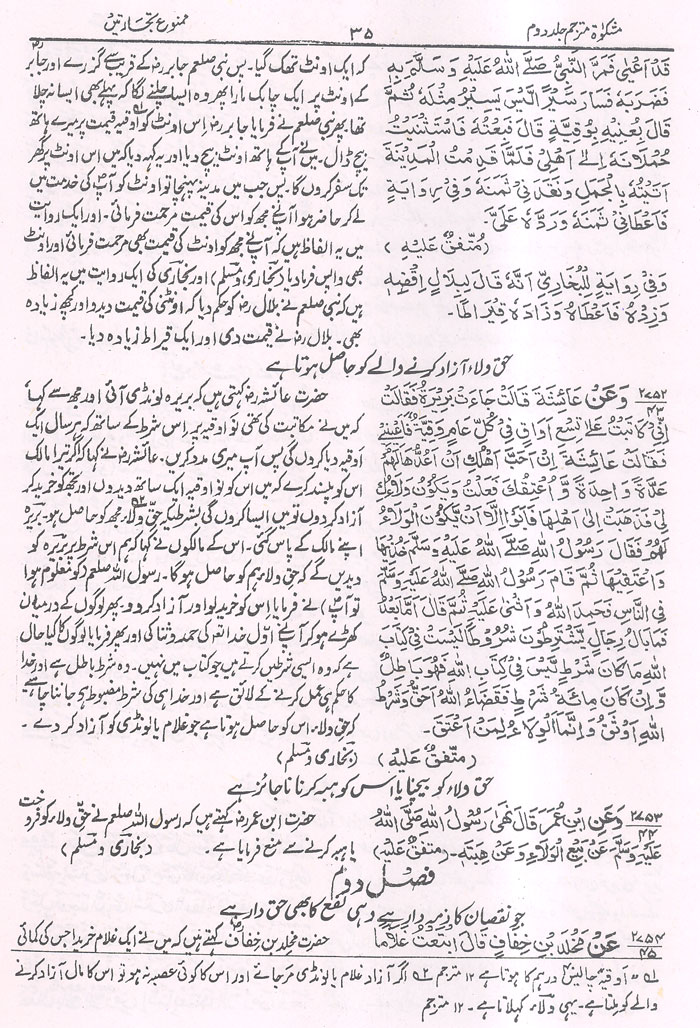 مشکوٰۃ مترجم جلد دوم
۳۵
ممنوع تجارتیں
قَدْ اَعْیٰی فَمَرَّ النَّبِیُّ صَلَّے اللّٰہُ عَلَیْہِ وَسَلَّمَ بِہٖ
فَضَرَبَہٗ فَسَارَ سَیْرًا لَّیْسَ یَسِیْرُ مِثْلَہٗ ثُمَّ
قَالَ بِعْنِیْہِ بِوُقِیَّۃٍ قَالَ فَبِعْتُہٗ فَاسْتَثْنَیْتُ
حُمْلَانَہٗ اِلٰے اَھْلِیْ فَلَمَّا قَدِمْتُ الْمَدِیْنَۃَ
اَتَیْتُہٗ بِالْجَمَلِ وَنَقَدَنِیْ ثَمَنَہٗ وَفِیْ رِوَایَۃٍ
فَاَعْطَانِیْ ثَمَنَہٗ وَرَدَّہٗ عَلَیَّ۔
(مُتَّفَقٌ عَلَیْہِ)
وَفِیْ رِوَایَۃٍ لِّلْبُخَارِیِّ اَنَّہٗ قَالَ لِبِلَالٍ اِقْضِہٖ
وَزِدْہُ فَاَعْطَاہُ وَزَادَہٗ قِیْرَاطًا۔
کہ ایک اونٹ تھک گیا۔ پس نبی صلعم جابر رضؓ کے قریب سے گزرے اور جابرؓ
کے اونٹ پر ایک چابک مارا پھر وہ ایسا چلنے لگا کہ پہلے بھی ایسا نہ چلا
تھا، پھر نبی صلعم نے فرمایا جابر رضؓ اس اونٹ کو اوقیہ قیمت پر میرے ہاتھ
بیچ ڈال۔ میں نے آپ کے ہاتھ اونٹ بیچ دیا اور یہ کہہ دیا کہ میں اس اونٹ پر گھر
تک سفر کروں گا۔ پس جب میں مدینہ پہنچا تو اونٹ کو آپؐ کی خدمت میں
لے کر حاضر ہوا آپ نے مجھ کو اس کی قیمت مرحمت فرمائی۔ اور ایک روایت
میں یہ الفاظ ہیں کہ آپ نے مجھ کو اونٹ کی قیمت بھی مرحمت فرمائی اور اونٹ
بھی واپس فرما دیا (بخاری ومسلم) اور بخاری کی ایک روایت میں یہ الفاظ
ہیں کہ نبی صلعم نے بلال رضؓ کو حکم دیا کہ اونٹنی کی قیمت دیدو اور کچھ زیادہ
بھی۔ بلال رضؓ نے قیمت دی اور ایک قیراط زیادہ دیا۔
حق ولاء آزاد کرنے والے کو حاصل ہوتا ہے
۲۷۵۲/۴۳ وَعَنْ عَائِشَۃَ قَالَتْ جَاءَتْ بَرِیْرَۃُ فَقَالَتْ
اِنِّیْ کَاتَبْتُ عَلٰے تِسْعِ اَوَاقٍ فِیْ کُلِّ عَامٍ وُقِیَّۃٌ فَاَعِیْنِیْنِیْ
فَقَالَتْ عَائِشَۃُ اِنْ اَحَبَّ اَھْلُكِ اَنْ اَعُدَّھَا لَھُمْ
عَدَّۃً وَّاحِدَۃً وَّاُعْتِقَكِ فَعَلْتُ وَیَکُوْنُ وَلَاءُكِ
لِیْ فَذَھَبَتْ اِلٰی اَھْلِھَا فَاَبَوْا اِلَّا اَنْ یَّکُوْنَ الْوَلَاءُ
لَھُمْ فَقَالَ رَسُوْلُ اللّٰہِ صَلَّے اللّٰہُ عَلَیْہِ وَسَلَّمَ خُذِیْھَا
وَاَعْتِقِیْھَا ثُمَّ قَامَ رَسُوْلُ اللّٰہِ صَلَّے اللّٰہُ عَلَیْہِ وَسَلَّمَ
فِی النَّاسِ فَحَمِدَ اللّٰہَ وَاَثْنٰی عَلَیْہِ ثُمَّ قَالَ اَمَّا بَعْدُ
فَمَا بَالُ رِجَالٍ یَّشْتَرِطُوْنَ شُرُوْطًا لَّیْسَتْ فِیْ کِتَابِ
اللّٰہِ مَا کَانَ شَرْطٍ لَّیْسَ فِیْ کِتَابِ اللّٰہِ فَھُوَ بَاطِلٌ
وَّاِنْ کَانَ مِائَۃَ شَرْطٍ فَقَضَاءُ اللّٰہِ اَحَقُّ وَشَرْطُ
اللّٰہِ اَوْثَقُ وَاِنَّمَا الْوَلَاءُ لِمَنْ اَعْتَقَ۔
(مُتَّفَقٌ عَلَیْہِ)
حضرت عائشہ رضؓ کہتی ہیں کہ بریرہ لونڈی آئی اور مجھ سے کہا
کہ میں نے مکاتبت کی تھی نو اوقیہ پر اس شرط کے ساتھ کہ ہر سال ایک
اوقیہ دیا کروں گی پس آپ میری مدد کریں۔ عائشہ رضؓ نے کہا کہ اگر تیرا مالک
اس کو پسند کرے کہ میں اس کو نو اوقیہ ایک ساتھ دیدوں اور تجھ کو خرید کر
آزاد کردوں تو میں ایسا کروں گی بشرطیکہ حق ولاء مجھ کو حاصل ہو۔ بریرہ
اپنے مالک کے پاس گئی۔ اس کے مالکوں نے کہا کہ ہم اس شرط پر بریرہ کو
دیدیں گے کہ حق ولاء ہم کو حاصل ہوگا۔ رسول اللہ صلعم کو معلوم ہوا
تو آپؐ نے فرمایا اس کو خرید لو اور آزاد کردو۔ پھر لوگوں کے درمیان
کھڑے ہو کر آپ نے اوّل خدا تعالیٰ کی حمد وثنا کی اور پھر فرمایا لوگوں کا کیا حال
ہے کہ وہ ایسی شرطیں کرتے ہیں جو کتاب میں نہیں۔ وہ شرط باطل ہے اور خدا
کا حکم ہی عمل کرنے کے لائق ہے اور خدا ہی کی شرط مضبوط ہے جاننا چاہیے
کہ حق ولاء اس کو حاصل ہوتا ہے جو غلام یا لونڈی کو آزاد کردے۔
(بخاری ومسلم)
حق ولاء کو بیچنا یا اس کو ہبہ کرنا ناجائز ہے
۲۷۵۳/۴۴ وَعَنِ ابْنِ عُمَرَ قَالَ نَھٰی رَسُوْلُ اللّٰہِ صَلَّی اللّٰہُ
عَلَیْہِ وَسَلَّمَ عَنْ بَیْعِ الْوَلَاءِ وَعَنْ ھِبَتِہٖ۔ (متفق علیہ)
حضرت ابن عمر رضؓ کہتے ہیں کہ رسول اللہ صلعم نے حق ولاء کو فروخت
یا ہبہ کرنے سے منع فرمایا ہے (بخاری ومسلم)
فصل دوم
جو نقصان کا ذمہ دار ہے وہی نفع کا بھی حق دار ہے
۲۷۵۴/۴۵ عَنْ مَخْلَدِ بْنِ خِفَافٍ قَالَ ابْتَعْتُ غُلَامًا
حضرت مخلد بن خفافؓ کہتے ہیں کہ میں نے ایک غلام خریدا جس کی کمائی
۱؎ اوقیہ چالیس درہم کا ہوتا ہے ۱۲ مترجم ۲؎ اگر آزاد غلام یا لونڈی مر جائے اور اس کا کوئی عصبہ نہ ہو تو اس کا مال آزاد کرنے
والے کو ملتا ہے۔ یہی ولاء کہلاتا ہے۔ ۱۲ مترجم